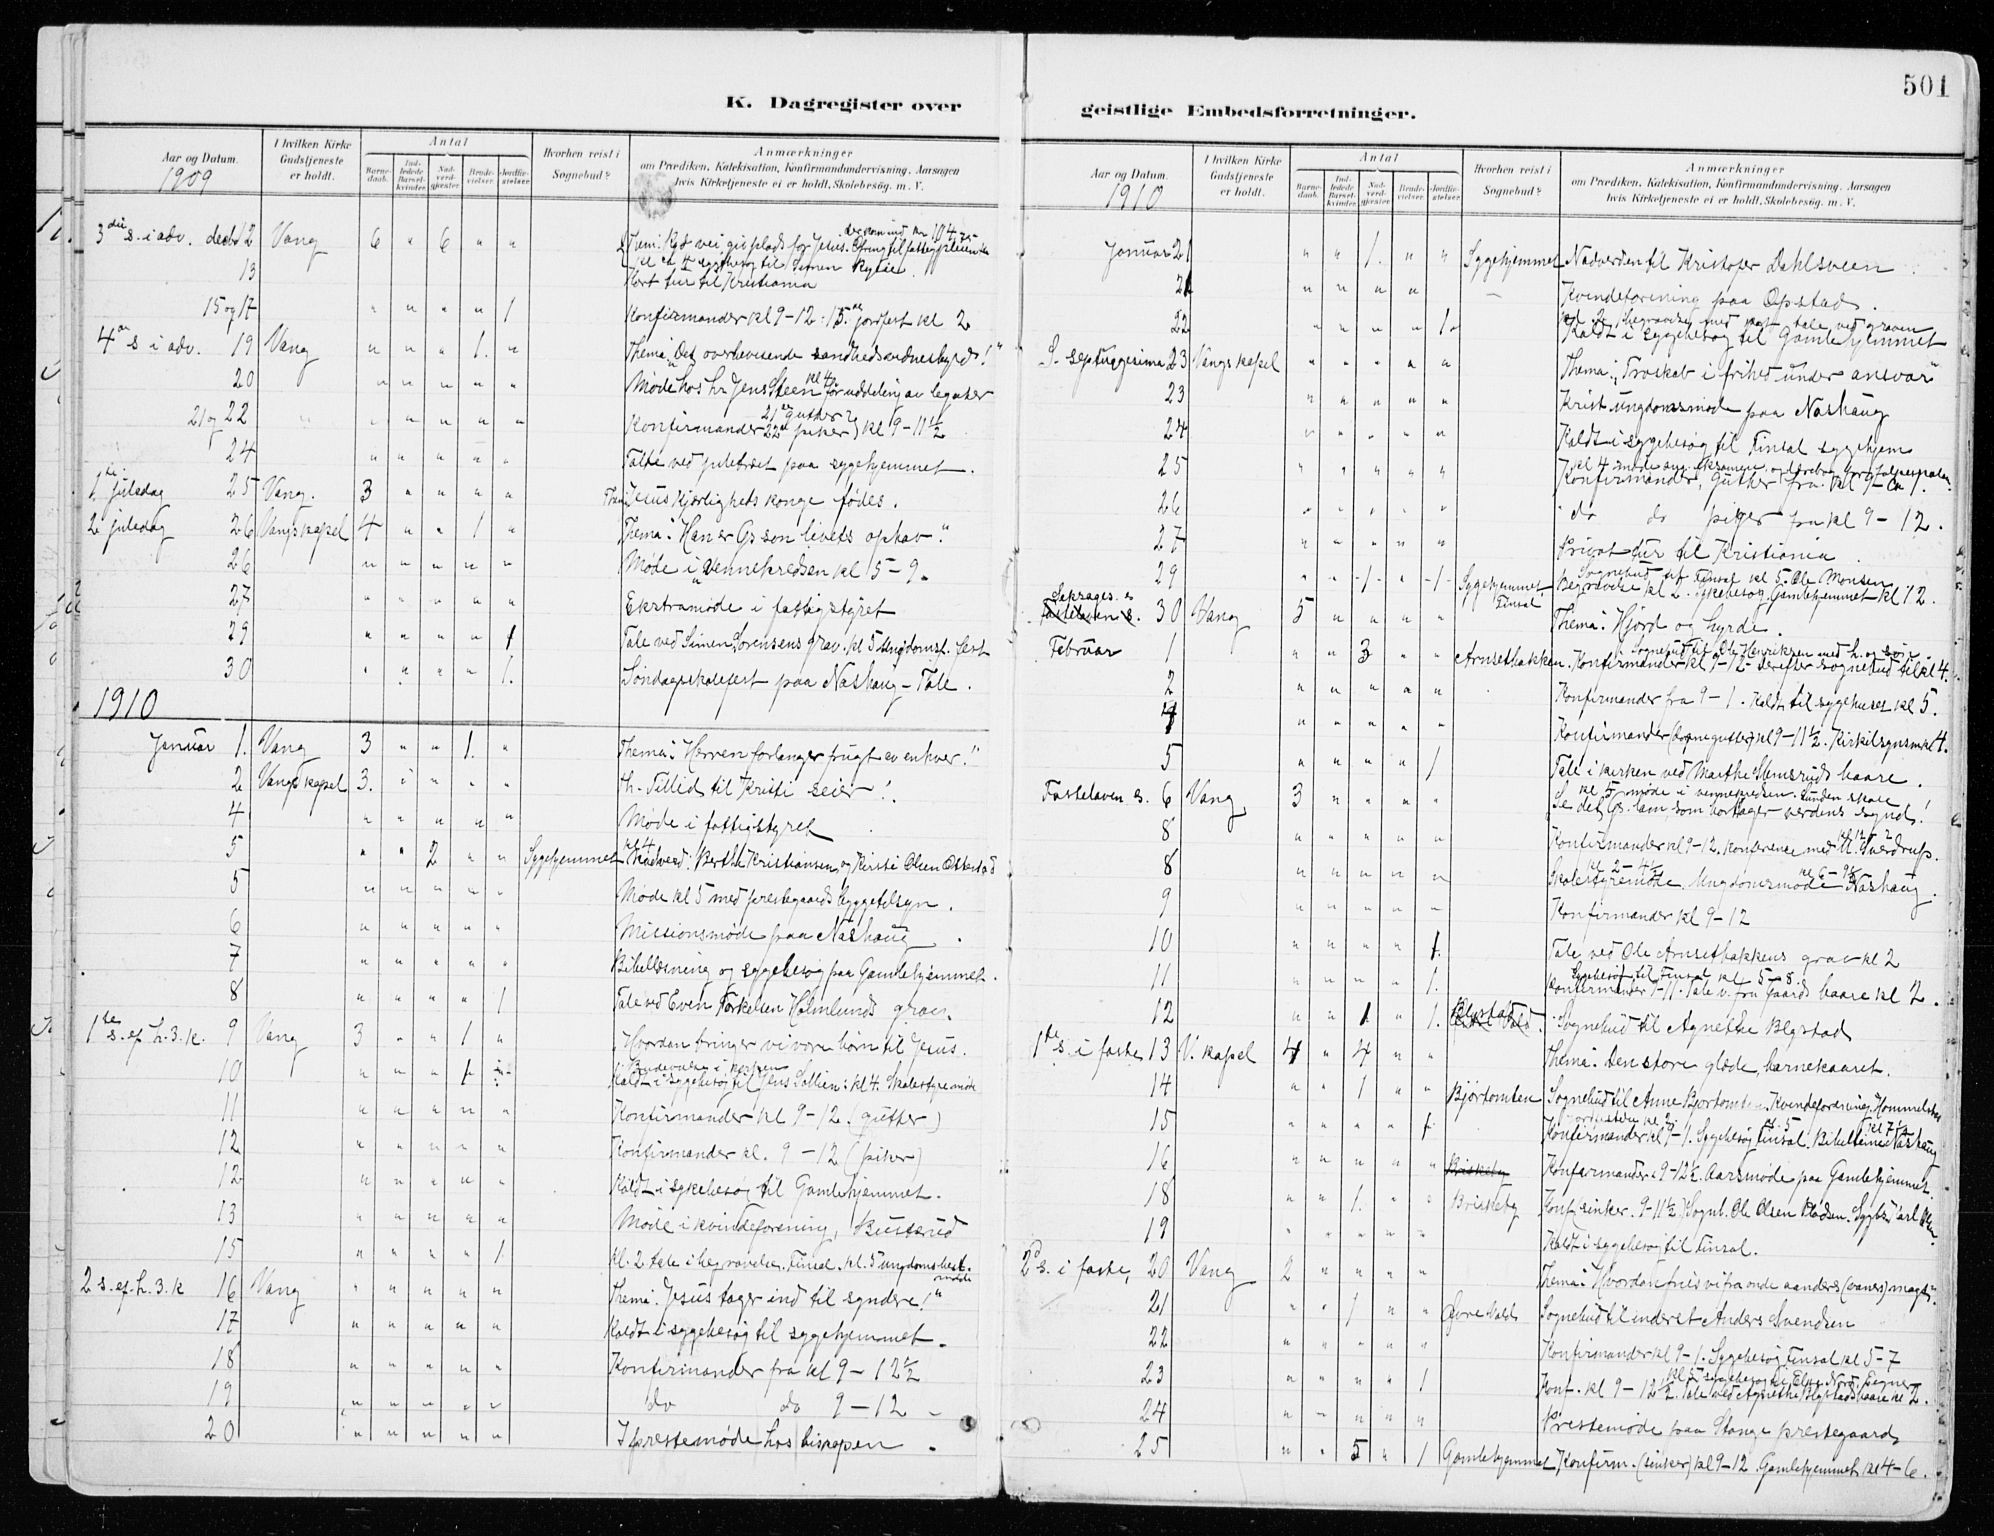 501
K. Dagregister over
geistlige Embedsforretninger.
Aar og Datum.
1909
I hvilken Kirke
Gudstjeneste
er holdt.
Antal
Barne-
daab.
Ind-
ledede
Barsel-
kvinder.
Nad-
verd-
gjester.
Brude-
vielser.
Jordfæ-
stelser.
Hvorhen reist i
Sognebud?
Anmærkninger
om Prædiken, Katekisation, Konfirmandundervisning, Aarsagen
hvis Kirketjeneste ei er holdt, Skolebesøg, m. V.
3die s. i adv. decbr 12 Vang 6 " 6 " "
13 Kort tur til Kristiania
15 og 17 " " " " 1 Konfirmander kl 9-12. 15de jordfest kl 2
4de s i adv. 19 Vang " " " 1. " Thema: "Det overbevisende sandhedsvidnesbyrd!"
20 " " " " " Møde hos hr Jens Steen kl 4 for uddeling av legater
21 og 22 " " " " " " Konfirmander 21de gutter 22de piker kl 9-11½
24 " " " " " Talte ved juletræet paa sygehjemmet.
1ste juledag 25 Vang. 3 " " " " Thema: Jesus Kjærligheds konge fødes.
2 juledag 26 Vangs kapel 4 " " 1 " Thema: "Han er Gs son livets ophav."
26 " " " " " Møde i vennekredsen kl 5-9.
27 " " " " " Ekstramøde i fattigstyret
29 " " " " 1 Tale ved Simen Sørensens grav. kl 5 Ungdomsf. fest
30 " " " " 1. Søndagsskolefest paa Nashaug - Tale.
1910
Januar 1. Vang 3 " " 1. " Thema: "Herren forlanger frugt av enhver!"
2 Vangs kapel 3. " " " " Th- Tillid til Kristi seier!
4 " " " " " Møde i fattigstyret
5 " " 2 " " Sygehjemmet kl 4 Nadverd: Berthe Kristiansen og Kirsti Olsen Ottestad
5 " " " " " Møde kl 5 med prestegaards bygge tilsyn.
6 " " " " " Missionsmøde paa Nashaug.
7 " " " " " Bibellæsning og sygebesøg paa Gamlehjemmet.
8 " " " " 1 Tale ved Even Torkelsen Holmlunds grav.
1ste s. ef. h. 3. k. 9 Vang 3 " " 1 " Hvordan bringer vi vore børn til Jesus.
10 " " " 1 Brudevielse i kirken
Kaldt i sygebesøg til Jens Sollien: kl 4. Skolestyremøde
11 " " " " " Konfirmander kl 9-12 (gutter)
12 " " " " " Konfirmander kl. 9-12 (piker)
12 " " " " " Kaldt i sykebesøg til Gamlehjemmet.
13 " " " " " Møde i kvindeforening, Busterud
15 " " " " 1. kl. 2 tale i begravelse, Finsal. kl. 5 ungdomsbestmøde
2 s. ef. h. 3. k 16 Vang " " " " " Thema: "Jesus tager ind til syndere!"
17 " " " " " Kaldt i sygebesøg til sygehjemmet.
18 " " " " " Konfirmander fra kl 9-12½
19 " " " " " do do 9-12
20 " " " " " I prestemøde hos biskopen.
Aar og Datum.
1910
I hvilken Kirke
Gudstjeneste
er holdt.
Antal
Barne-
daab.
Ind-
ledede
Barsel-
kvinder.
Nad-
verd-
gjester.
Brude-
vielser.
Jordfæ-
stelser.
Hvorhen reist i
Sognebud?
Anmærkninger
om Prædiken, Katekisation, Konfirmandundervisning, Aarsagen
hvis Kirketjeneste ei er holdt, Skolebesøg, m. V.
Januar 21 " " 1. " " Sygehjemmet Nadverden til Kristofer Dahlsveen
21 " " " " — Kvindeforening paa Opstad.
22 " " " " 1. kl 2. Begravelse med tale ved graven
Kaldt i sygebesøg til Gamlehjemmet
S. septuagesima 23 Vangs kapel " " " " " Thema: "Troskab i frihed under ansvar"
23 " " " " " Krist. ungdomsmøde paa Nashaug
24 " " " " " Kaldt i sygebesøg til Finsal sygehjem
25 " " " " " Konfirmander, gutter fra kl 9- ca 1.
26 " " " " " do do piger fra kl 9-12.
27 " " " " " Privat tur til Kristiania
29 " " 1 " 1 Sygehjemmet Finsal Sognebud til Finsal kl 5. Ole Monsen
Begravelse kl 2. Sykebesøg Gamlehjemmet kl 12.
Seksages. s 30 Vang 5 " " " " Thema: Hjord og hyrde.
Februar 1 " " 3 " " Arnsetbakken. Sognebud til Ole Henriksen med h. og søn.
Konfirmander kl 9-12 derefter sognebud til kl 4.
2 " " " " " Konfirmander fra 9-1. Kaldt til sygehuset kl 5.
4 " " " " " Konfirmander kl 9-11½. kl 4.
5 " " " " 1 Tale i kirken ved Marthe Slemsruds baare.
Fastelaven s. 6 Vang 3 " " " " kl 5 møde i vennekredsen.
Se det Gs. lam som borttager verdens synd!
8 " " " " " Konfirmander kl 9-12. Konference med Sverdrup. kl 12-2
8 " " " " " kl 2-4½ Skolestyremøde. Ungdomsmøde Nashaug. kl 6-9½
9 " " " " " Konfirmander kl 9-12
10 " " " " 1. Tale ved Ole Arnsetbakkens grav kl 2
11 " " " " 1. Sygebesøg til Finsal kl 5-8.
Konfirmander 9-11. Tale v. fru Gaards baare kl 2.
12 " " 1 " 1. Blystad Sognebud til Agnethe Blystad
1ste s. i faste 13 V. kapel 4 " 4 " " Thema: Den store glæde, barnekaaret.
14 " " 1 " " Bjørtomten Sognebud til Anne Bjørtomten. Kvindeforening, Hommelstad
15 " " " " 1 Jordfæstelse kl 2. kl 5 kl 7½
Konfirmander kl 9-1. Sygebesøg Finsal. Nashaug
16 " " " " " Briskeby Konfirmander 9-12½. Aarsmøde paa Gamlehjemmet.
18 " " 1. " " Briskeby Konf (sinker. 9-11½) Sognb. Ole Olsen
19 " " " " " Kaldt i sygebesøg til Finsal.
2den s. i faste, 20 Vang 2 " " " " Thema: Hvordan fries vi fra onde aanders (vaners) magt".
21 " " 1 " " Øvre Vold Sognebud til inderst Anders Svendsen
22 " " " " " Konfirmander kl 9-1. Sygebesøg Finsal kl 5-7
23 " " " " 1 Konf. kl 9-12½. Tale ved Agnethe Blystads baare kl 2.
24 " " " " " Prestemøde paa Stange prestegaard
25 " " 5 " 1 Gamlehjemmet Konfirm. (sinker) kl 9-12 Gamlehjemmet kl 4-6.